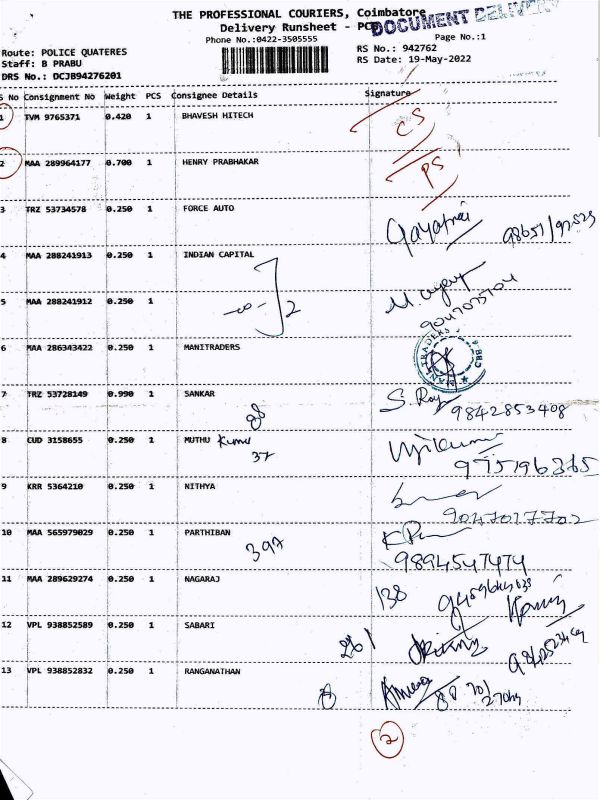 THE PROFESSIONAL COURIERS, Coimbatore
Delivery Runsheet - PCB
DOCUMENT DELIVERY
Phone No.:0422-3505555
Page No.:1
Route: POLICE QUATERES
RS No.: 942762
Staff: B PRABU
RS Date: 19-May-2022
DRS No.: DCJB94276201
S No Consignment No Weight PCS Consignee Details Signature
1 TVM 9765371 0.420 1 BHAVESH HITECH CS
2 MAA 289964177 0.700 1 HENRY PRABHAKAR PS
3 TRZ 53734578 0.250 1 FORCE AUTO Gayatri
4 MAA 288241913 0.250 1 INDIAN CAPITAL
5 MAA 288241912 0.250 1
6 MAA 286343422 0.250 1 MANITRADERS
MANI TRADERS
7 TRZ 53728149 0.990 1 SANKAR S. Raj
9842853408
8 CUD 3158655 0.250 1 MUTHU Kumar
37
9751963365
9 KRR 5364210 0.250 1 NITHYA
9047017702
10 MAA 565979029 0.250 1 PARTHIBAN
397
9894547474
11 MAA 289629274 0.250 1 NAGARAJ 138
12 VPL 938852589 0.250 1 SABARI 261
13 VPL 938852832 0.250 1 RANGANATHAN
2